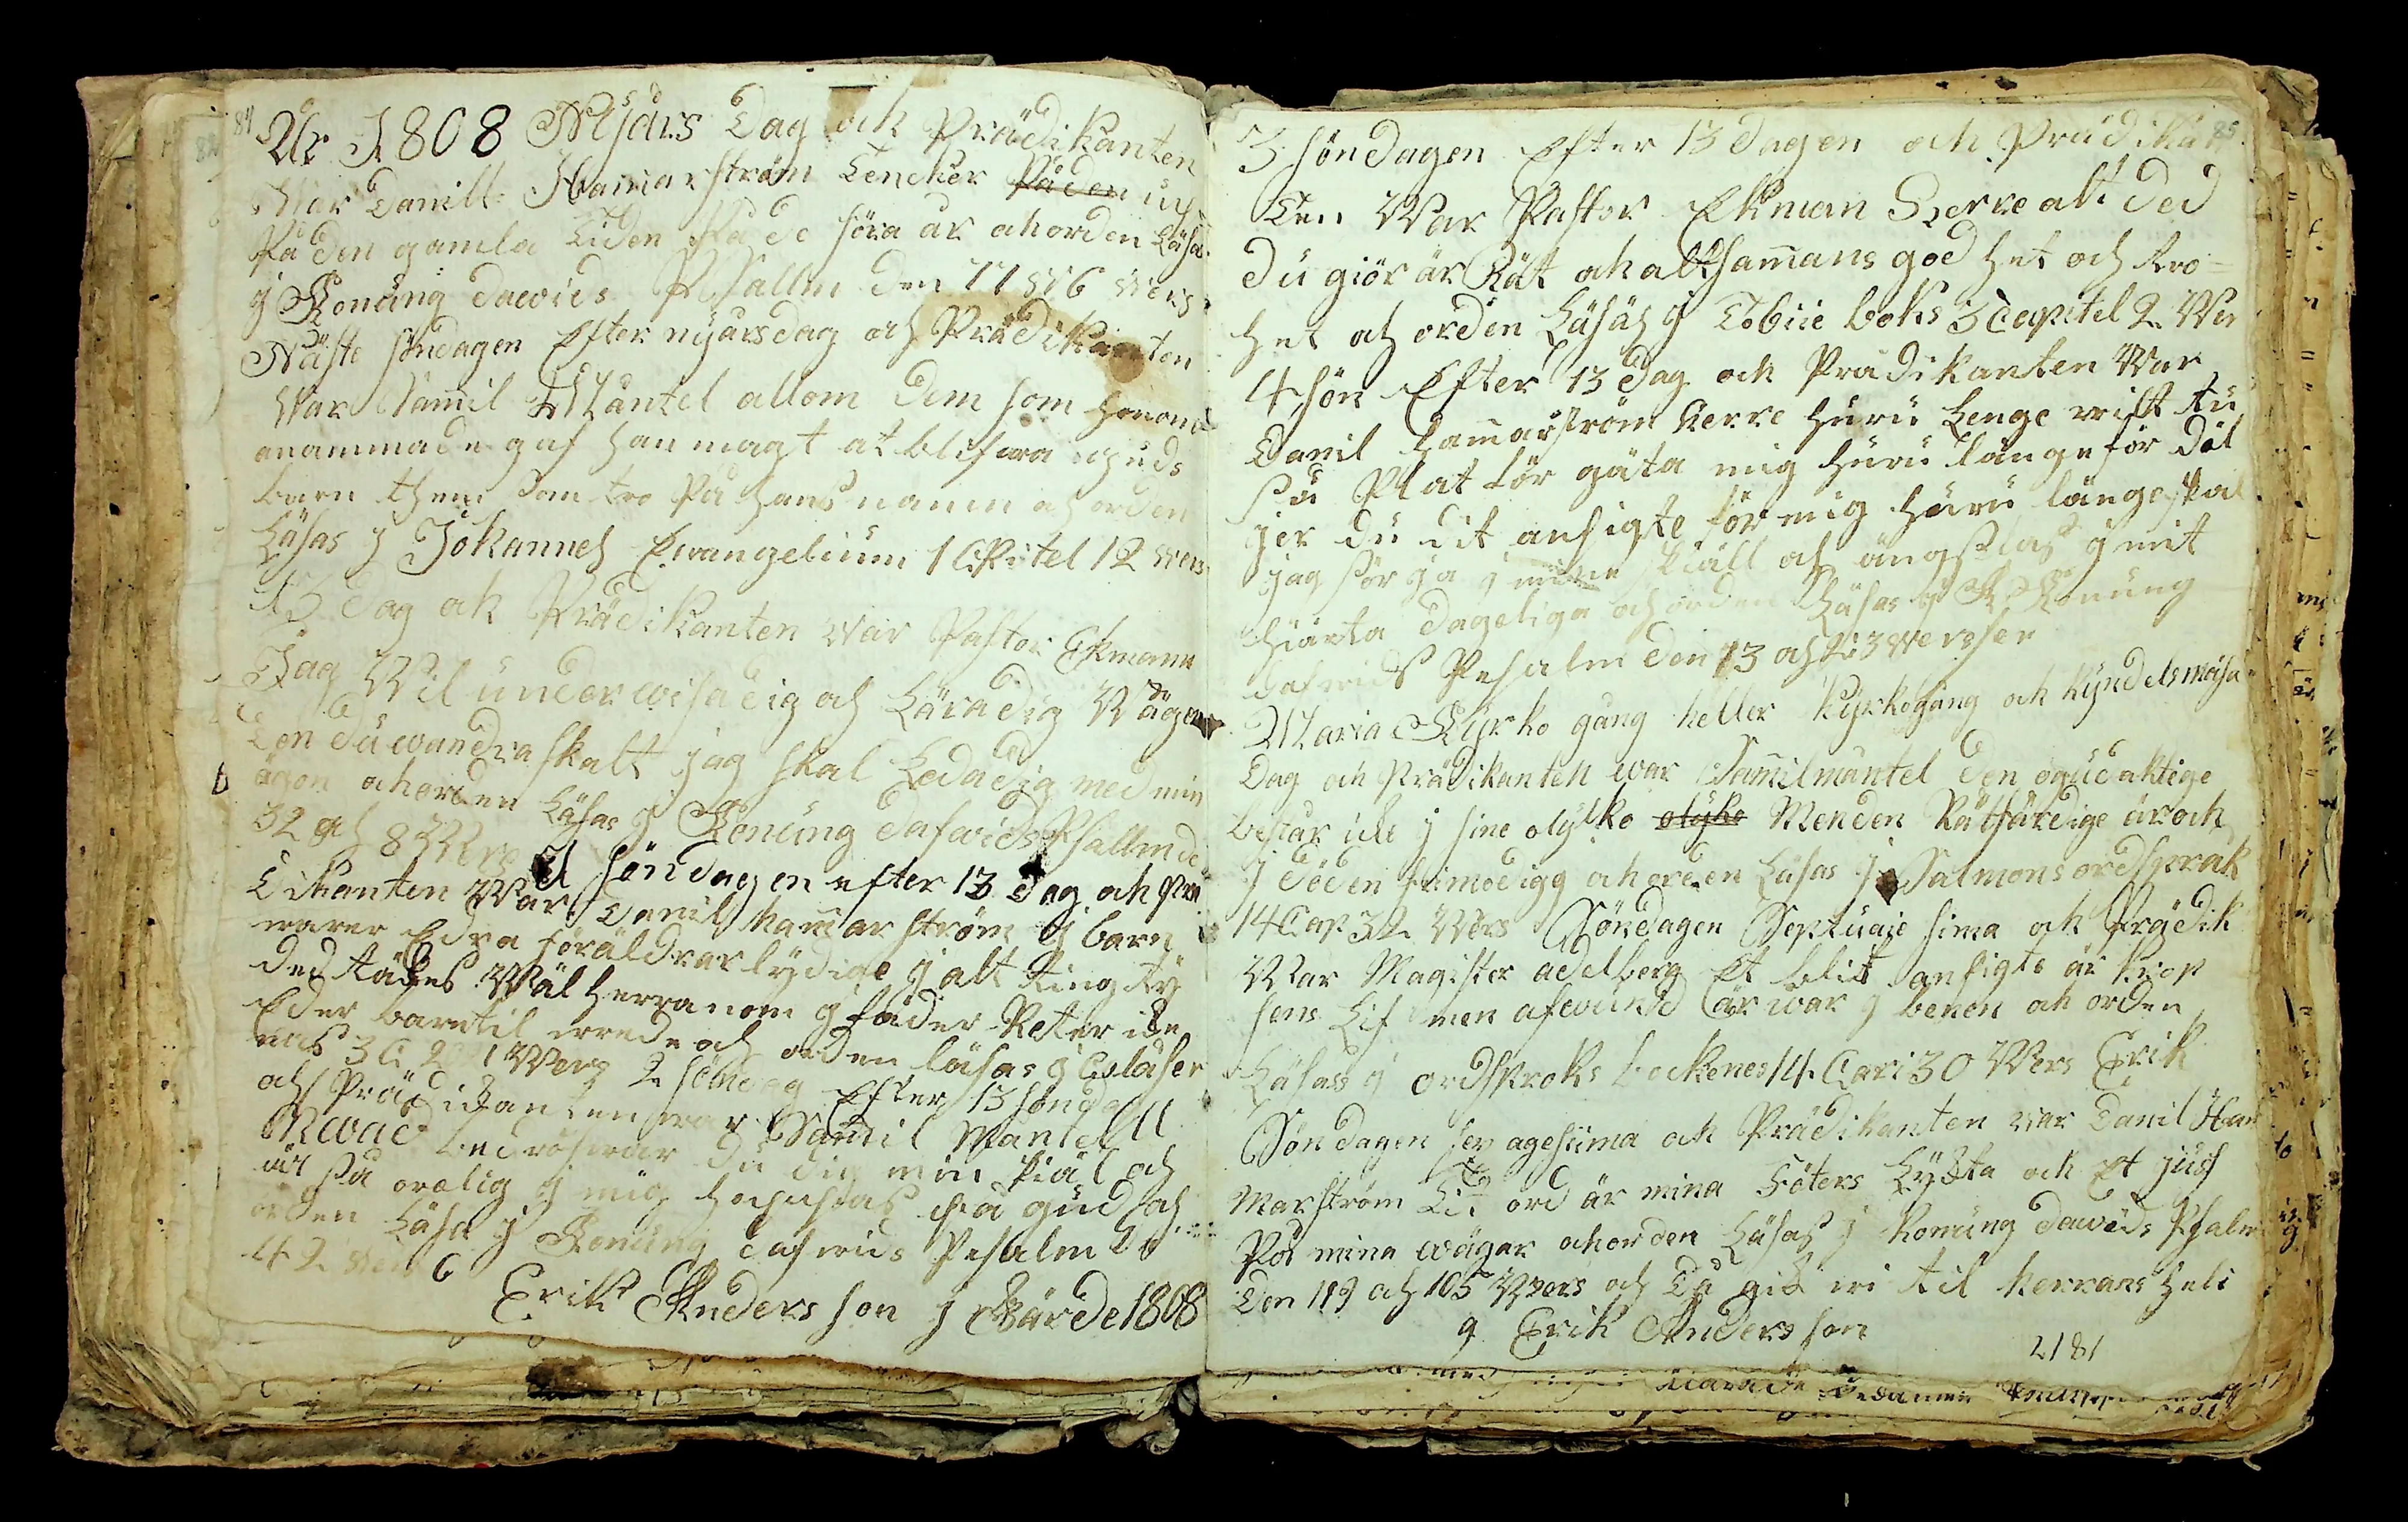 84
År 1808 Nyårs Dag ock Prädikanten
War Daniel Hammarström Tencker Påden
På den gamla Tiden På de föra år ahorden Läsa
j Konung dawids Psallm den 77 6 wers
Näste söndagen Efter nyårsdag och Prädikanten
War Samil Mäntel allom Dem som honom
anammade gaf han magt at blifwa guds
barn them som tro På hans namn ah orden
Läsas j Johannes Ewangelium 1 Cäpitel 12 wers
13 dag ock Prädikanten war Pastor Ekmann
Jag Wil underwisa dig och Lära dig Wägen
Den du wandra skalt jag skal Leda dig med min
ögon ahorden Läsas j Konung dafwids Psallm de
32 och 8 Wers 1 söndagen efter 13 dag ah Prä
Dikanten War Danil hammarström j barn
warer Edra föräldrar lydige j alt ting ty
ded täckes Wäl herranom j fäder Reter icke
Eder barn til wrede och orden läsas j Colåser
nas 3 C 20 21 Wers 2 söndag Efter 13 sönda
och Prädikanten war Samil Mäntell
Hwad bedröfwar du dig min siäl och
äst så orolig j mig hoppas På gud och
orden Läsas j Konung dafwids Pesalm De
42 wers 6
Erik Andersson j Wärde 1808
85
3 söndagen Efter 13 dagen och Prädikat
Ten War Pastor Ekman Herre alt ded
du giör är Rät ah alt samans god het och tro=
het och orden Läsas j Tobiie boks 3 Capitel 2 Wer
4 sön Efter 13 dag och Prädikanten War
Danil hammarström herre huru Lenge wilt tu
så Plat för gäta mig huru länge för döl
jer du dit ansigte för mig huru länge skal
jag sörja j mine siäll och ängslas j mit
hiärta dageliga och orden Läsas j Konung
Dafwids Pesalm den 13 och 2 3 werser
Maria Kyrko gång heller Kyrkogång och Kyndelsmässo
Dag och Prädikanten war Samil mäntel den ogudaktige
består icke j sine olyko olyko Men den Rätfärdige är och
j döden frimodigg ahorden Läsas j Salmons ordspråk
14 Cap 32 Wers Söndagen Septuaie sima och Prädik
War Magister adelberg Et blit ansigte är krop
sens Lif men afwund är war j benen ah orden
Läsass j ordsproks bockenes 14 Capi 30 Wers Erik
Söndagen sexagesiima och Prädikanten war Danil Ham
Marström Tit ord är mina Föters Lykta och Et jus
På mina wägar ahorden Läsass j Konung dawids Psalm
Den 119 och 105 Wers och Då gik wi til herrans heli
g Erik Andersson
2181